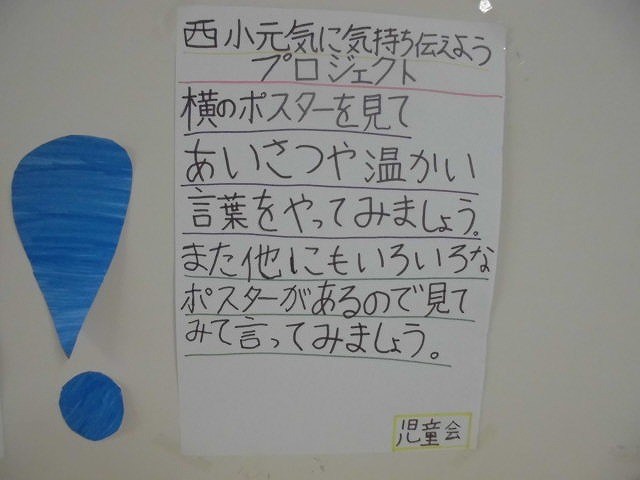 西小元気に気持ち伝えよう
プロジェクト
横のポスターを見て
あいさつや温かい
言葉をやってみましょう。
また他にもいろいろな
ポスターがあるので見て
みて言ってみましょう。
児童会